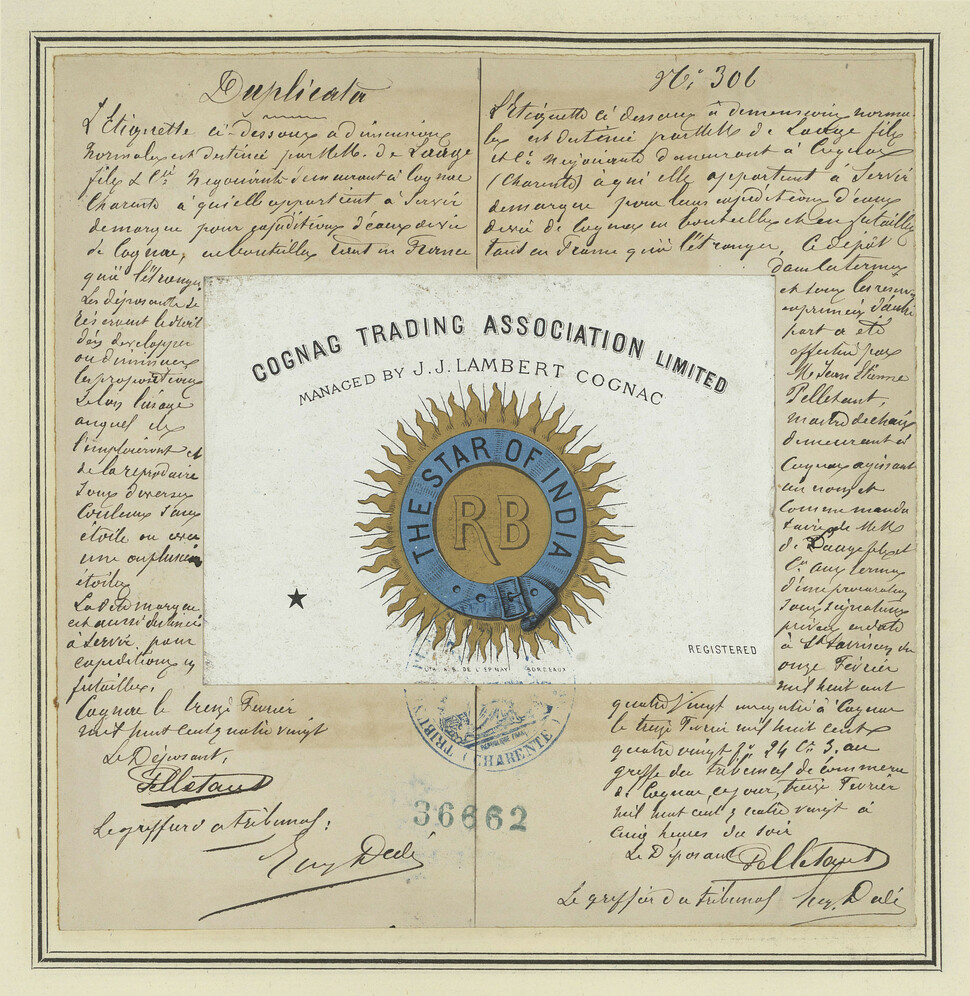 Duplicata
L'Etiquette ci-dessous a dimensions
normales est destinée par MM. de Laage
fils & Cie Negociants demeurant à Cognac
Charente à qui elle appartient à servir
de marque pour expéditions d'eaux de vie
de Cognac, en bouteilles tant en France
qu'à l'étranger
Les déposants se
réservent le droit
de développer
ou diminuer
les proportions
selon l'usage
auquel ils
l'emploieront et
de la reproduire
sous diverses
couleurs sans
étoile ou avec
une ou plusieurs
étoiles
La dite marque
est aussi destinée
à servir pour
expéditions en
futailles.
Cognac le treize Fevrier
mil huit cent quatre vingt
Le Déposant,
Pelletant
Le greffier du tribunal:
Eug Dedé
No 306
L'Etiquette ci dessous à dimensions norma-
les est destinée par MM. de Laage fils
et Cie Negociants demeurant à Cognac
(Charente) à qui elle appartient à servir
de marque pour leurs expéditions d'eaux
de vie de Cognac en bouteilles et en futailles
tant en France qu'à l'étranger, Ce dépôt
dans les termes
et sous les réserves
exprimées d'autre
part a été
effectué par
Mr Jean Etienne
Pelletant,
maître de chais
demeurant à
Cognac agissant
au nom et
comme manda
taire de MM
de Laage fils et
Cie aux termes
d'une procuration
sous signatures
privées en date
à St Savinien du
onze Fevrier
mil huit cent
quatre vingt enregistré à Cognac
le treize Fevrier mil huit cent
quatre vingt fo 24 Co 3, au
greffe du tribunal de commerce
de Cognac, ce jour, treize Fevrier
mil huit cent quatre vingt à
cinq heures du soir
Le Déposant Pelletant
Le greffier du tribunal Eug. Dedé
COGNAG TRADING ASSOCIATION LIMITED
MANAGED BY J.J. LAMBERT COGNAC
THE STAR OF INDIA
RB
REGISTERED
DE L'EPINAY BORDEAUX
TRIBUN
(CHARENTE)
36662